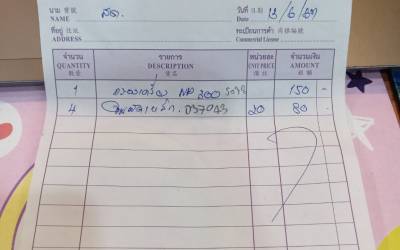 นาม 寶號 สด. วันที่ 日期 13/6/67
NAME Date
ที่อยู่ 住址 ทะเบียนการค้า 商標編號
ADDRESS Commercial License
จำนวน รายการ หน่วยละ จำนวนเงิน
QUANTITY DESCRIPTION UNIT PRICE AMOUNT
數量 貨名 價錢 銀額
1 NP 300 150 -
4 20 80 -